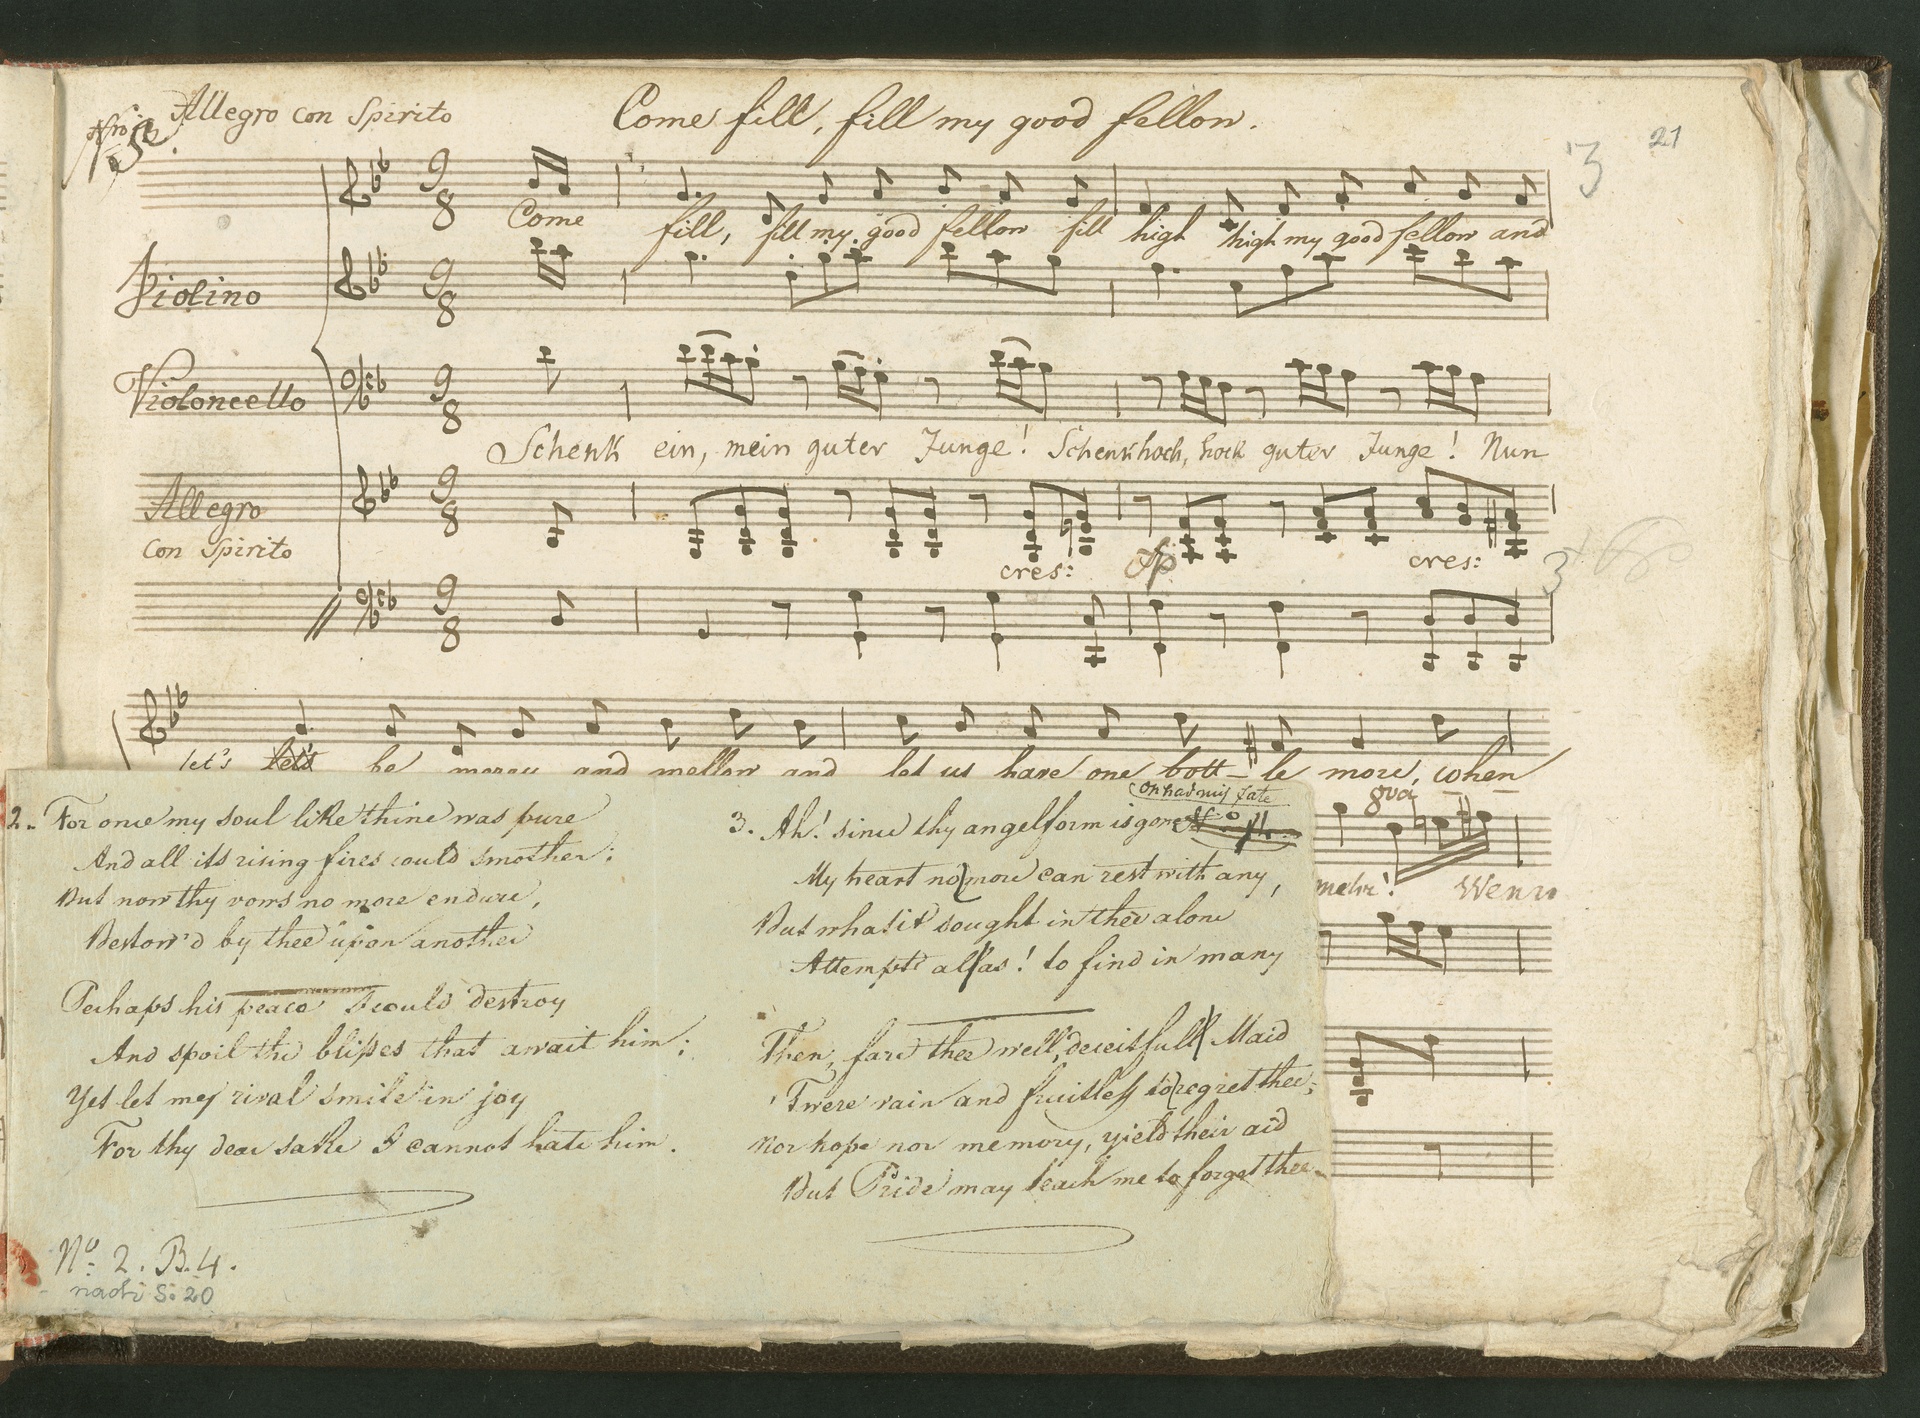 Allegro con Spirito
Come fill, fill my good fellow.
21
3
Come fill, fill my good fellow fill high high my good fellow and
Violino
Violoncello
Schenk ein, mein guter Junge! Schenk hoch, hoch guter Junge! Nun
Allegro
con Spirito
cres: fp cres:
let's let's be merry and mellow and let us have one bott-le more, when
8va
mehr! Wenn
2. For once my soul like thine was pure
And all its rising fires could smother;
But now thy vows no more endure,
Bestow'd by thee upon another
Perhaps his peace I could destroy
And spoil the blisses that await him;
Yet let my rival smile in joy
For thy dear sake I cannot hate him.
Oh had my fate
3. Ah! since thy angel form is gone
My heart no more can rest with any,
But what it sought in thee alone
Attempts alas! to find in many
Then, fare thee well, deceitfull Maid
'Twere vain and fruitless to regret thee;
Nor hope nor memory, yield their aid
But Pride may teach me to forget thee.
No. 2. B. 4.
nach S. 20